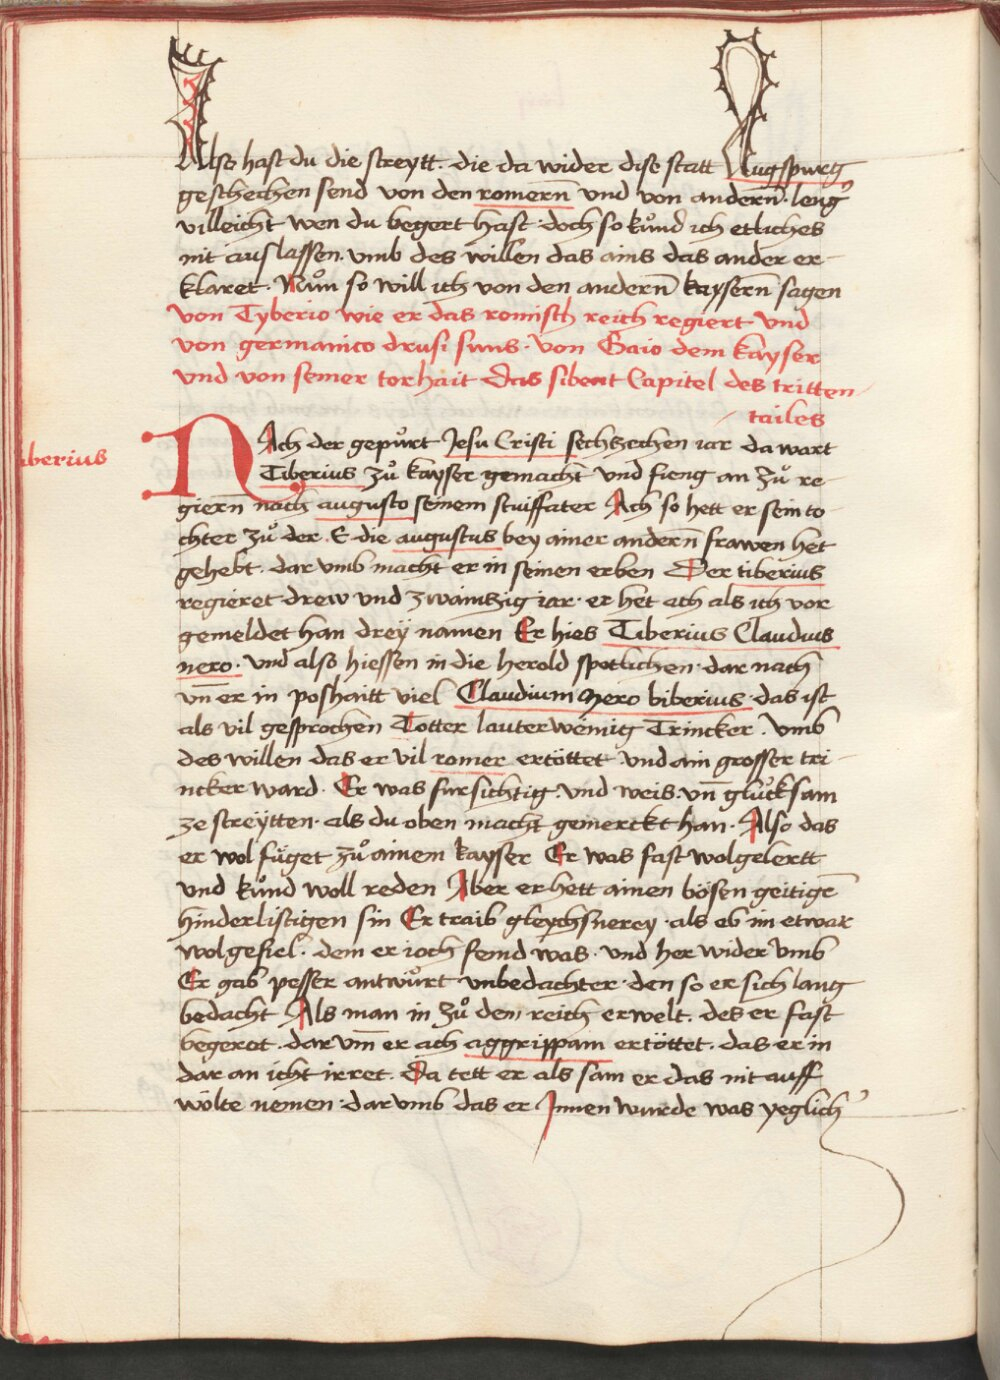 Also hast du die streytt. die da wider dise statt Augspurg
geschechen send von den romern und von andern̄. leng̾
villeicht wen du begert hast. doch so kůnd ich etliches
nit aus lassen. umb des willen das ains das ander er-
klaret. Nůn so will ich von den andern̄ kaysern̄ sagen
von Tyberio wie er das romisch reich regiert und
von germanico drusi suns. von Gaio dem kayser
und von seiner torhait das sibent Capitel des tritten
tailes
iberius
NAch der gepůrt Jesu Cristi sechzechen iar da wart
Tiberius zů kayser gemacht und fieng an zů re-
giern̄ nach augusto seinem stuiffater Ach so hett er sein to-
chter zů der .E. die augustus bey ainer andern̄ frawen het
gehebt. dar umb macht er in seinen erben Der tiberius
regieret drew und zwaintzig iar. er het ach als ich vor
gemeldet han dreÿ namen Er hies Tiberius Claudius
nero. und also hiessen in die herold spotlichen. dar nach
vn̄ er in poshaitt viel Claudium mero biberius. das ist
als vil gesprochen Totter lauter weinig Trincker. umb
des willen das er vil romer ertöttet und ain grosser tri-
ncker ward. Er was fursichtig. und weis. vn̄ glucksam
ze streÿtten. als du oben machst gemerckt han. Also das
er wol fůget zů ainem kayser Er was fast wolgelertt
und kůnd woll reden Aber er hett ainen bösen geitigē
hinderlistigen sin Er traib gleychsnerey. als eb im etwar
wolgefiel. dem er ioch feind was. und her wider umb
Er gab pesser antwůrt unbedachter. den so er sich lang
bedacht Als man in zů dem reich erwelt. des er fast
begerot. dar um̄ er ach aggrippam ertöttet. das er in
dar an icht irret. Da tett er als sam er das nit auff
wölte nemen. dar umb das er Innen wurde was yeglich̾